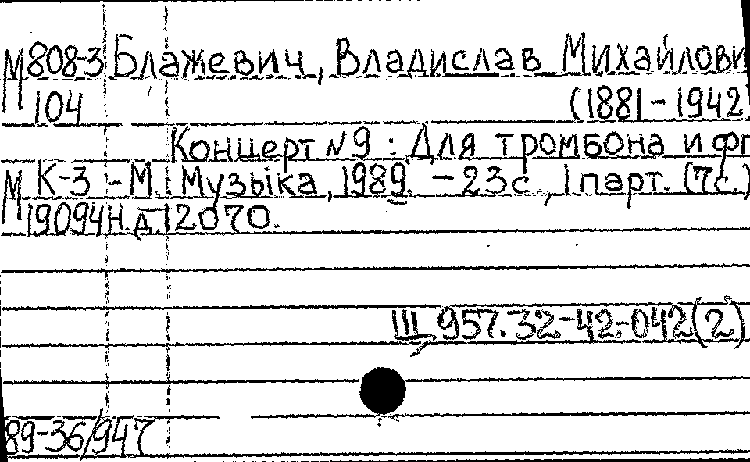 М808-3 Блажевич, Владислав Михайлови
104 (1881-1942
Концерт N 9 : Для тромбона и фп
М К-3 - М. : Музыка, 1989. - 23 с., 1 парт. (7 с.)
19094 Н.д. 12070.
Ш 957.32-42-042(2)
89-36/947